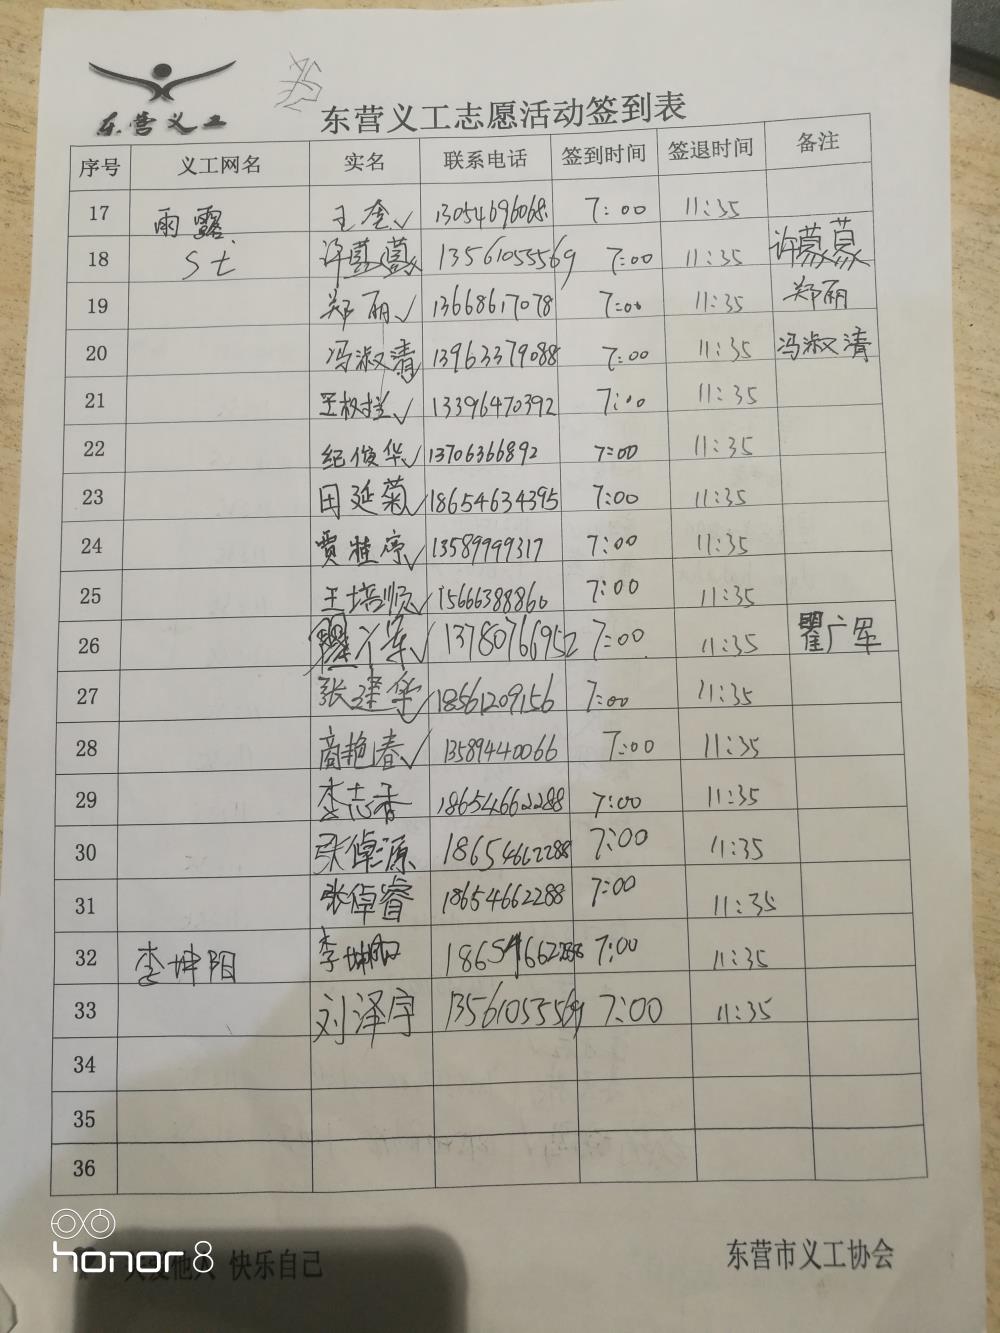 东营义工
东营义工志愿活动签到表
序号 义工网名 实名 联系电话 签到时间 签退时间 备注
17 雨露 王奎✓ 13054696068 7:00 11:35
18 St 许蒙蒙✓ 13561055569 7:00 11:35 许蒙蒙
19 郑丽✓ 13668617078 7:00 11:35 郑丽
20 冯淑清✓ 13963379088 7:00 11:35 冯淑清
21 王权拦✓ 13396470392 7:00 11:35
22 纪俊华✓ 13706366892 7:00 11:35
23 田延菊✓ 18654634395 7:00 11:35
24 贾桂亭✓ 13589999317 7:00 11:35
25 王培顺✓ 15666388866 7:00 11:35
26 13780766952 7:00 11:35 瞿广军
27 张建华✓ 18561209156 7:00 11:35
28 商艳春✓ 13589440066 7:00 11:35
29 李志香 18654662288 7:00 11:35
30 张倬源 18654662288 7:00 11:35
31 张倬睿 18654662288 7:00 11:35
32 李坤阳 李坤阳 18654662288 7:00 11:35
33 刘泽宇 13561055569 7:00 11:35
34
35
36
快乐自己 东营市义工协会
honor 8